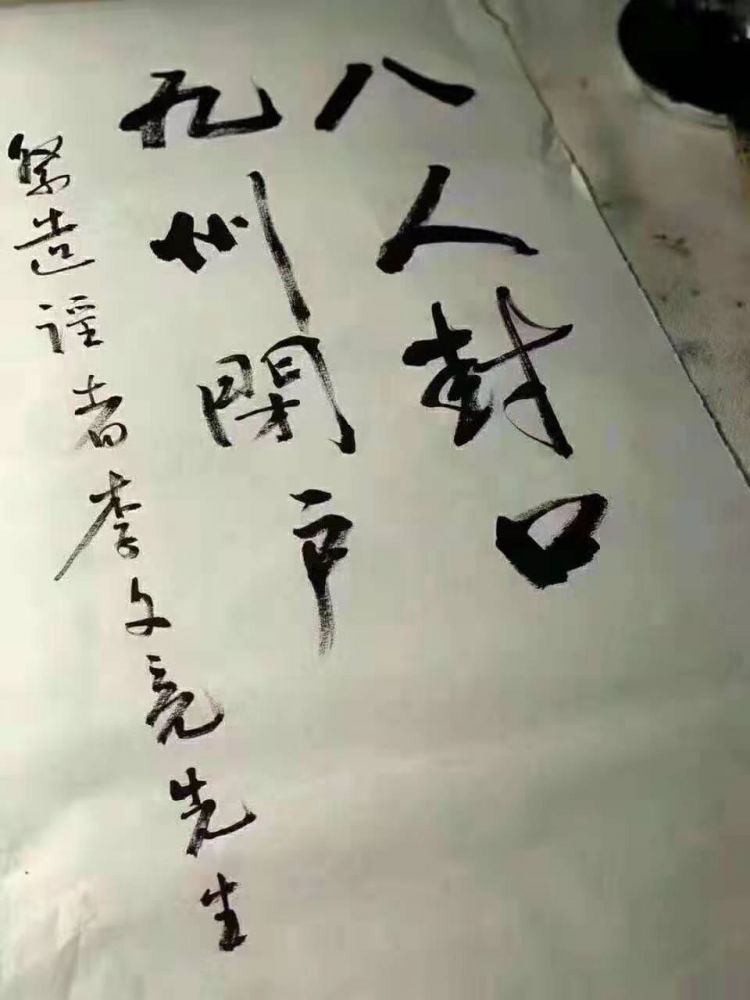 八人封口
九州閉户
祭造谣者李文亮先生